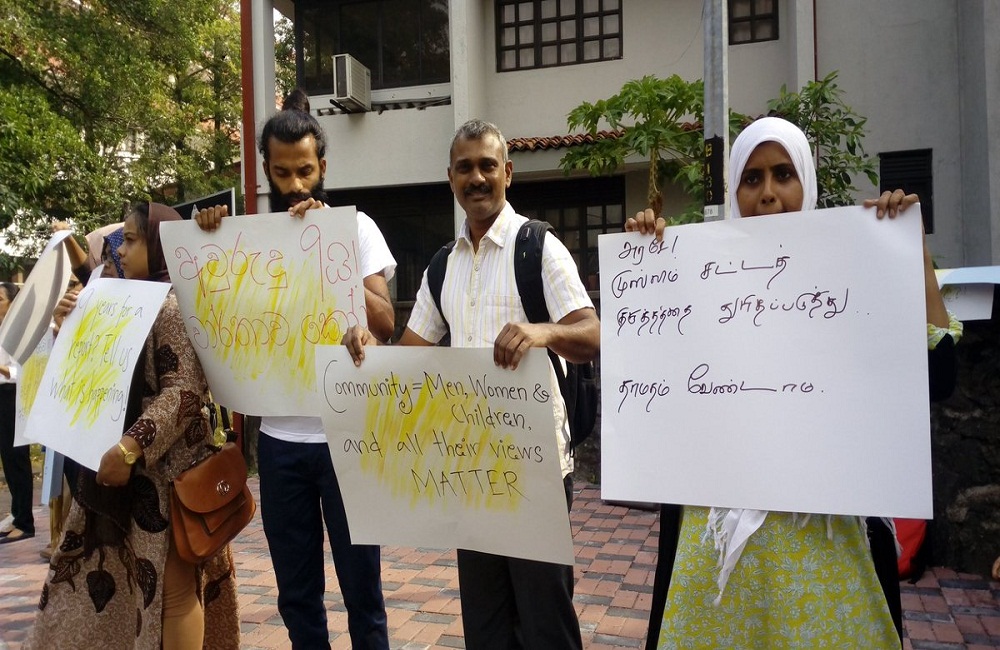 years for a
report? Tell us
what is happening!
අවුරුදු 9යි
වාර්තාව කෝ
Community = Men, Women &
Children,
and all their views
MATTER
அரசே!
முஸ்லிம் சட்டத்
திருத்தத்தை துரிதப்படுத்து..
தாமதம் வேண்டாம்.